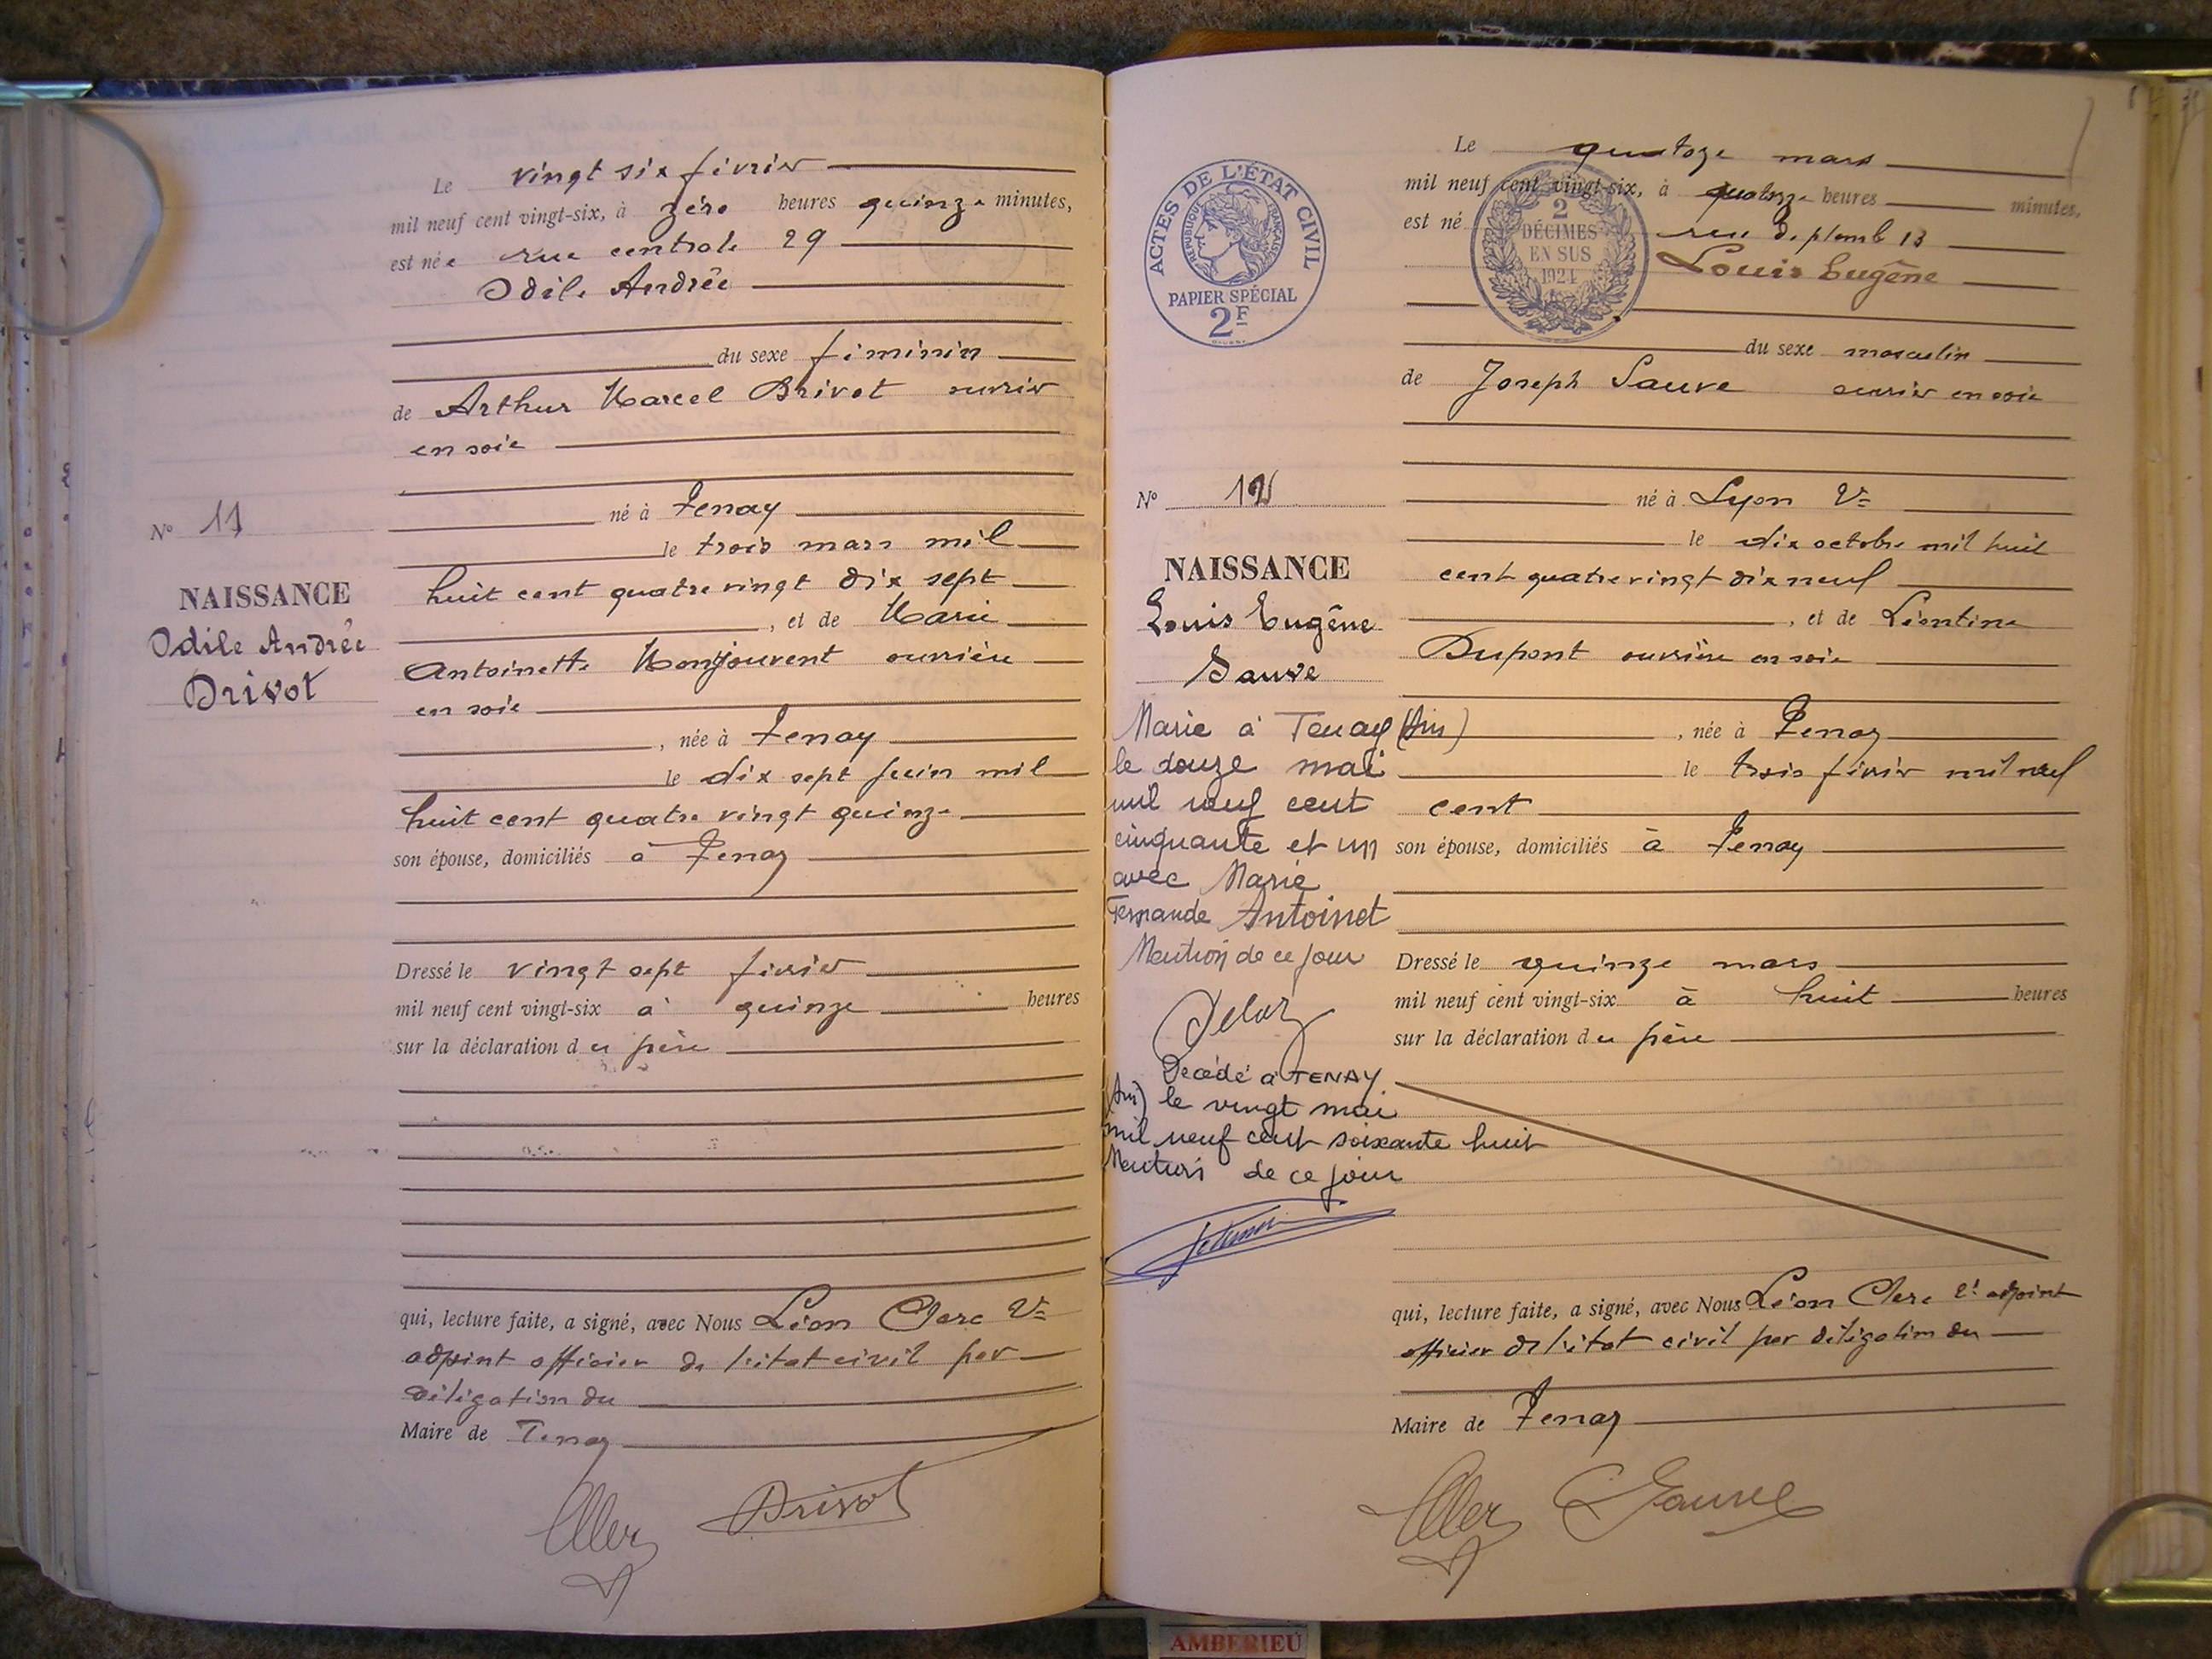 Le vingt six février
mil neuf cent vingt-six, à zéro heures quinze minutes,
est née rue centrale 29
Odile Andrée
du sexe féminin
de Arthur Marcel Drivot ouvrier
en soie
né à Tenay
le trois mars mil
huit cent quatre vingt dix sept
, et de Marie
Antoinette Monjouvent ouvrière
en soie
, née à Tenay
le dix sept juin mil
huit cent quatre vingt quinze
son épouse, domiciliés à Tenay
Dressé le vingt sept février
mil neuf cent vingt-six à quinze heures
sur la déclaration du père
qui, lecture faite, a signé, avec Nous Léon Clerc 2e
adjoint officier de l'état civil par
délégation du
Maire de Tenay
Drivot
N° 11
NAISSANCE
Odile Andrée
Drivot
ACTES DE L'ÉTAT CIVIL
RÉPUBLIQUE FRANÇAISE
PAPIER SPÉCIAL
2F
2
DÉCIMES
EN SUS
1924
Le quatorze mars
mil neuf cent vingt-six, à quatorze heures minutes,
est né rue de plomb 13
Louis Eugène
du sexe masculin
de Joseph Sauve ouvrier en soie
né à Lyon 2e
le dix octobre mil huit
cent quatre vingt dix neuf
, et de Léontine
Dupont ouvrière en soie
, née à Tenay
le trois février mil neuf
cent
son épouse, domiciliés à Tenay
Dressé le quinze mars
mil neuf cent vingt-six à huit heures
sur la déclaration du père
qui, lecture faite, a signé, avec Nous Léon Clerc 2e adjoint
officier de l'état civil par délégation du
Maire de Tenay
Sauve
N° 12
NAISSANCE
Louis Eugène
Sauve
Marié à Tenay (Ain)
le douze mai
mil neuf cent
cinquante et un
avec Marie
Fernande Antoinet
Mention de ce jour
Décédé à TENAY
(Ain) le vingt mai
mil neuf cent soixante huit
Mention de ce jour
AMBERIEU